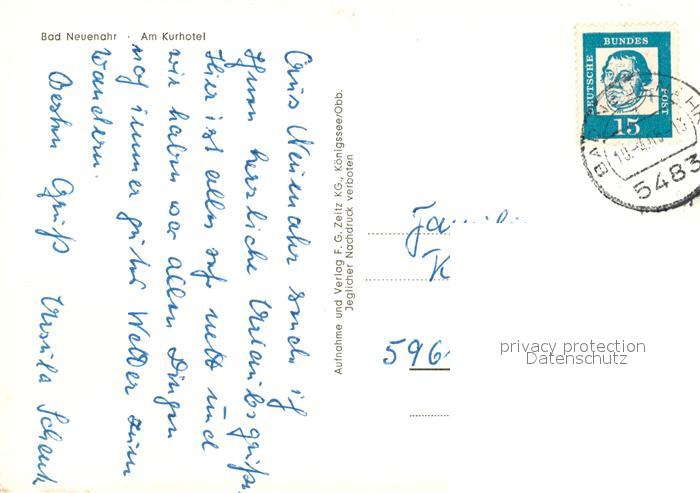 Bad Neuenahr · Am Kurhotel
Aus Neuenahr sende ich
Ihnen herzliche Urlaubsgrüße.
Hier ist alles sehr nett und
wir haben vor allen Dingen
noch immer gutes Wetter zum
wandern.
Besten Gruß Ursula Schenk
Aufnahme und Verlag F. G. Zeitz KG., Königssee/Obb.
Jeglicher Nachdruck verboten
DEUTSCHE BUNDES POST
15
5483
596
privacy protection
Datenschutz